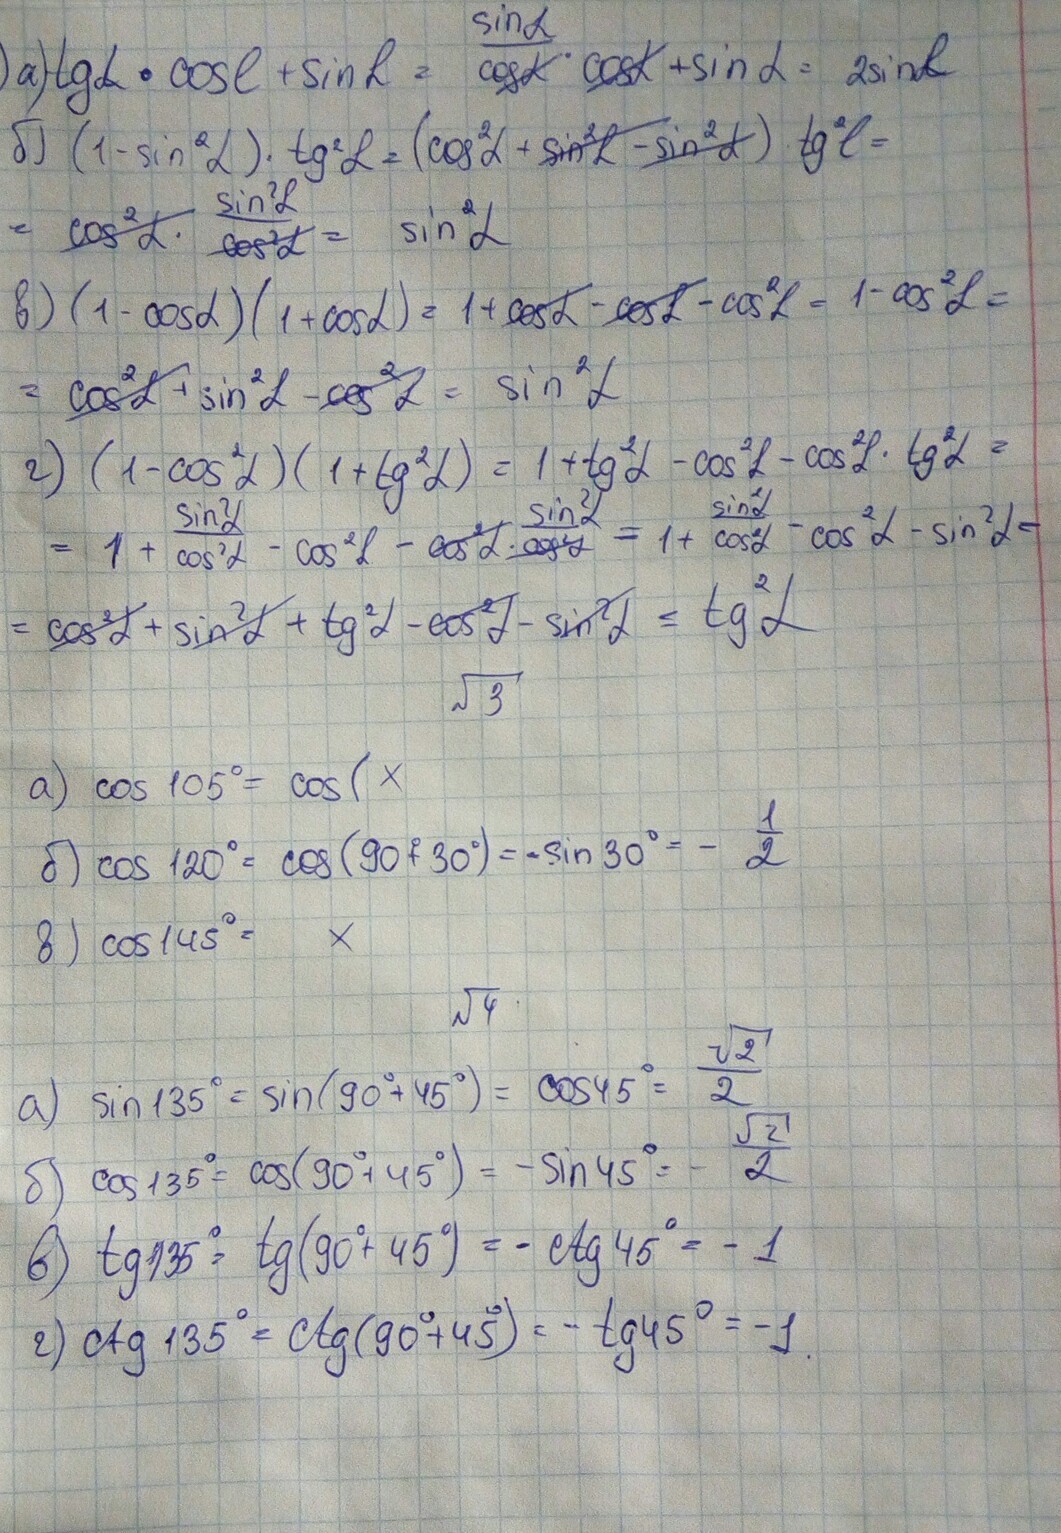 ) а) tgα • cosα + sinα = sinα/cosα · cosα + sinα = 2sinα
б) (1 - sin²α) · tg²α = (cos²α + sin²α - sin²α) · tg²α =
= cos²α · sin²α/cos²α = sin²α
в) (1 - cosα)(1 + cosα) = 1 + cosα - cosα - cos²α = 1 - cos²α =
= cos²α + sin²α - cos²α = sin²α
г) (1 - cos²α)(1 + tg²α) = 1 + tg²α - cos²α - cos²α · tg²α =
= 1 + sin²α/cos²α - cos²α - cos²α · sin²α/cos²α = 1 + sin²α/cos²α - cos²α - sin²α =
= cos²α + sin²α + tg²α - cos²α - sin²α = tg²α
√3
а) cos 105° = cos( ×
б) cos 120° = cos(90° + 30°) = - sin 30° = - 1/2
в) cos 145° = ×
√4
а) sin 135° = sin(90° + 45°) = cos 45° = √2/2
б) cos 135° = cos(90° + 45°) = - sin 45° = - √2/2
в) tg 135° = tg(90° + 45°) = - ctg 45° = - 1
г) ctg 135° = ctg(90° + 45°) = - tg 45° = -1.